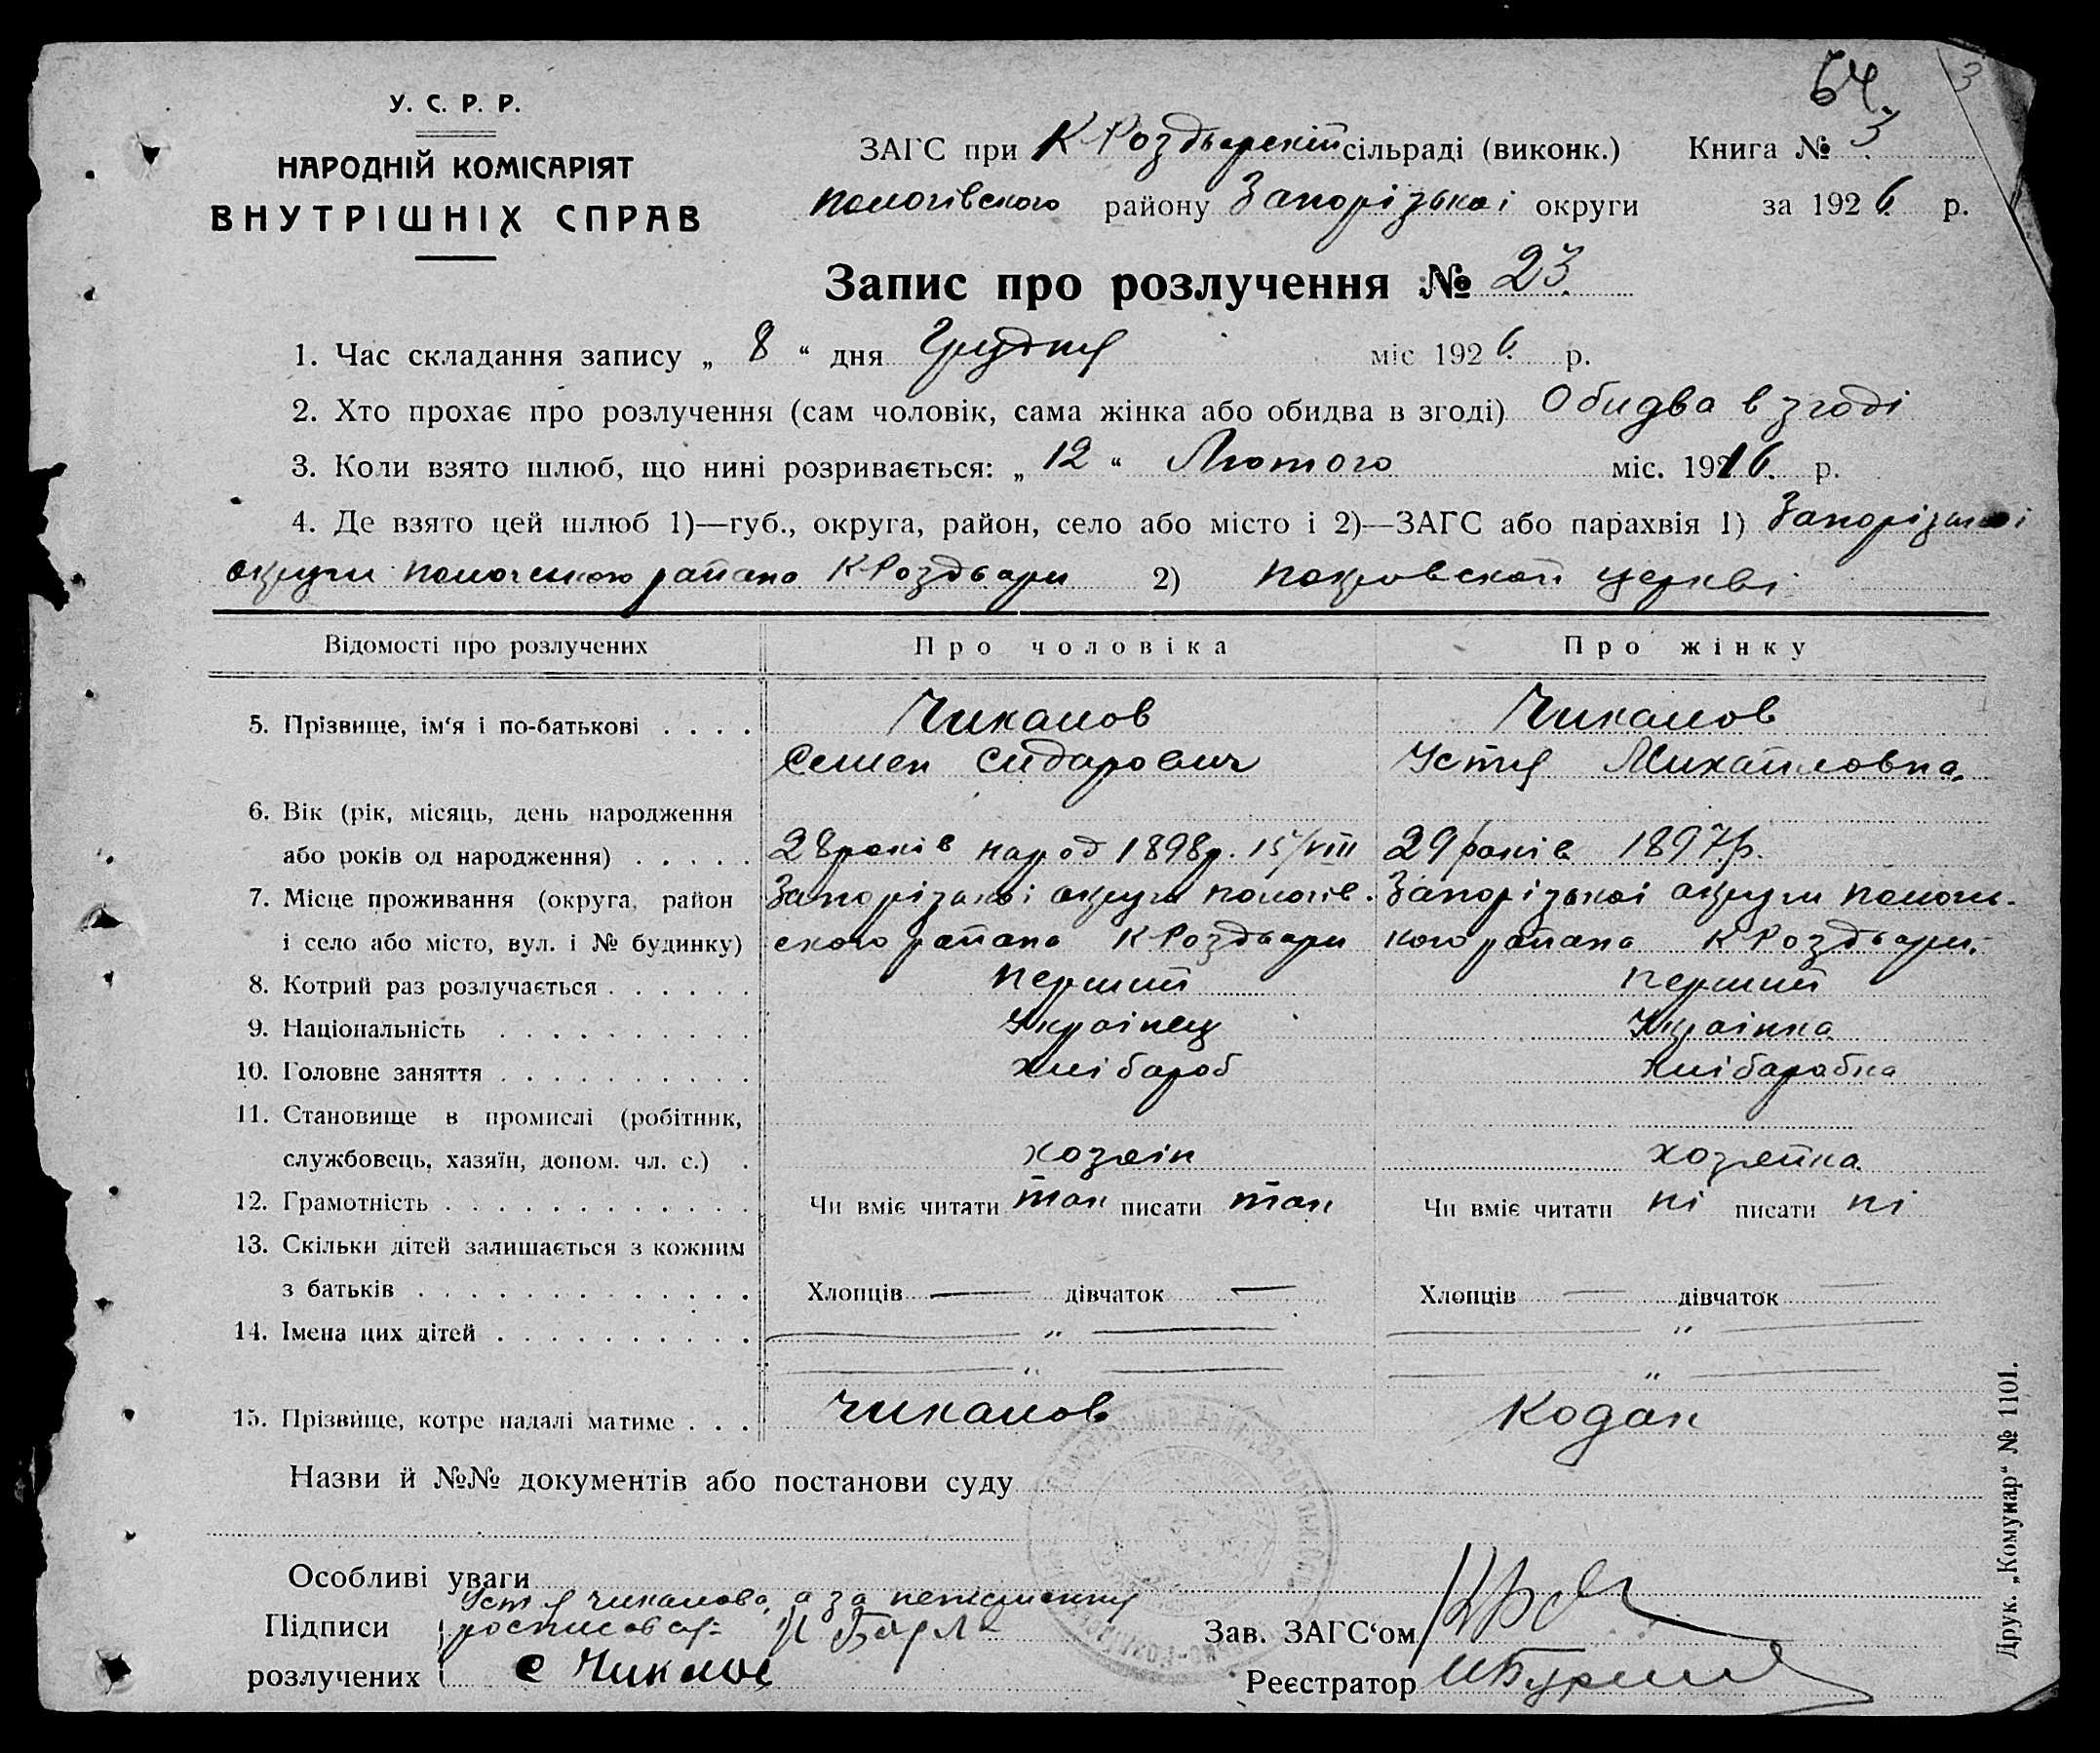 64.
3
У. С. Р. Р.
НАРОДНІЙ КОМІСАРІЯТ
ВНУТРІШНІХ СПРАВ
ЗАГС при К Роздорскій сільраді (виконк.) Книга № 3
пологівского району Запорізькоі округи за 1926 р.
Запис про розлучення № 23
1. Час складання запису „ 8 “ дня Грудня міс 1926 р.
2. Хто прохає про розлучення (сам чоловік, сама жінка або обидва в згоді) Обидва в згоді
3. Коли взято шлюб, що нині розривається: „ 12 “ Лютого міс. 1916 р.
4. Де взято цей шлюб 1)—губ., округа, район, село або місто і 2)—ЗАГС або парахвія 1) Запорізькоі
округи пологского района К Роздари 2) покровской церкві
Відомості про розлучених Про чоловіка Про жінку
5. Прізвище, ім‘я і по-батькові . . . . Чикалов Чикалов
Семен Сидарович Устя Михайловна.
6. Вік (рік, місяць, день народження
або років од народження) . . . . . 28 років народ 1898р. 15/VIII 29 років 1897р.
7. Місце проживання (округа, район Запорізькоі округи пологів- Запорізькоі округи пологс-
і село або місто, вул. і № будинку) ского района К Роздари кого района К Роздари.
8. Котрий раз розлучається . . . . . . перший перший
9. Національність . . . . . . . . . . Українец Українка
10. Головне заняття . . . . . . . . . . хлібароб хлібаробка
11. Становище в промислі (робітник,
службовець, хазяїн, допом. чл. с.) . хозяін хозяйка
12. Грамотність . . . . . . . . . . . . Чи вміє читати так писати так Чи вміє читати ні писати ні
13. Скільки дітей залишається з кожним
з батьків . . . . . . . . . . . . . Хлопців — дівчаток — Хлопців — дівчаток —
14. Імена цих дітей . . . . . . . . . . — „ — — „ —
— „ — — „ —
15. Прізвище, котре надалі матиме . . . Чикалов Кодак
Назви й №№ документів або постанови суду
Особливі уваги
Устя Чикалова, а за
Підписи
розлучених С Чикалов
Зав. ЗАГС‘ом
Реєстратор
Друк. „Комунар“ № 1101.